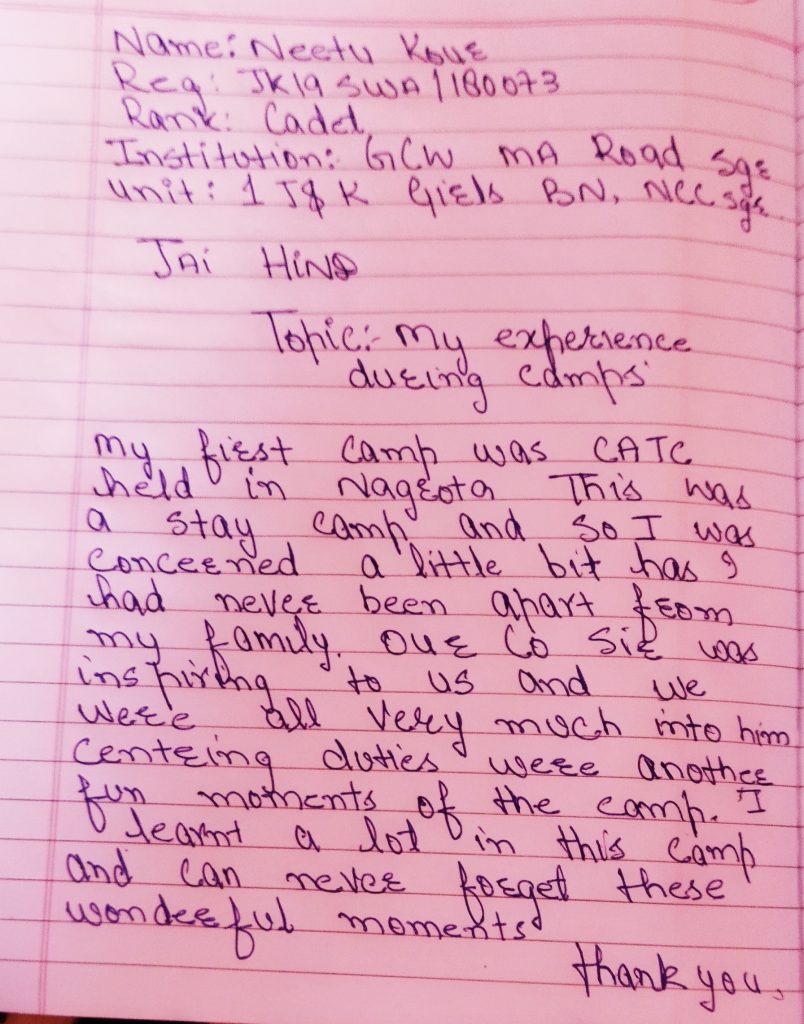 Name: Neetu Kour
Reg: JK19SWA/180073
Rank: Cadet
Institution: GCW MA Road Sgr
Unit: 1 J&K Girls BN, NCC Sgr
JAi HiND
Topic:- My experience
during camps
My first camp was CATC
held in Nagrota This was
a stay camp and so I was
concerned a little bit has I
had never been apart from
my family. our Co Sir was
inspiring to us and we
were all very much into him
Centring duties were another
fun moments of the camp. I
learnt a lot in this camp
and can never forget these
wonderful moments
thank you.